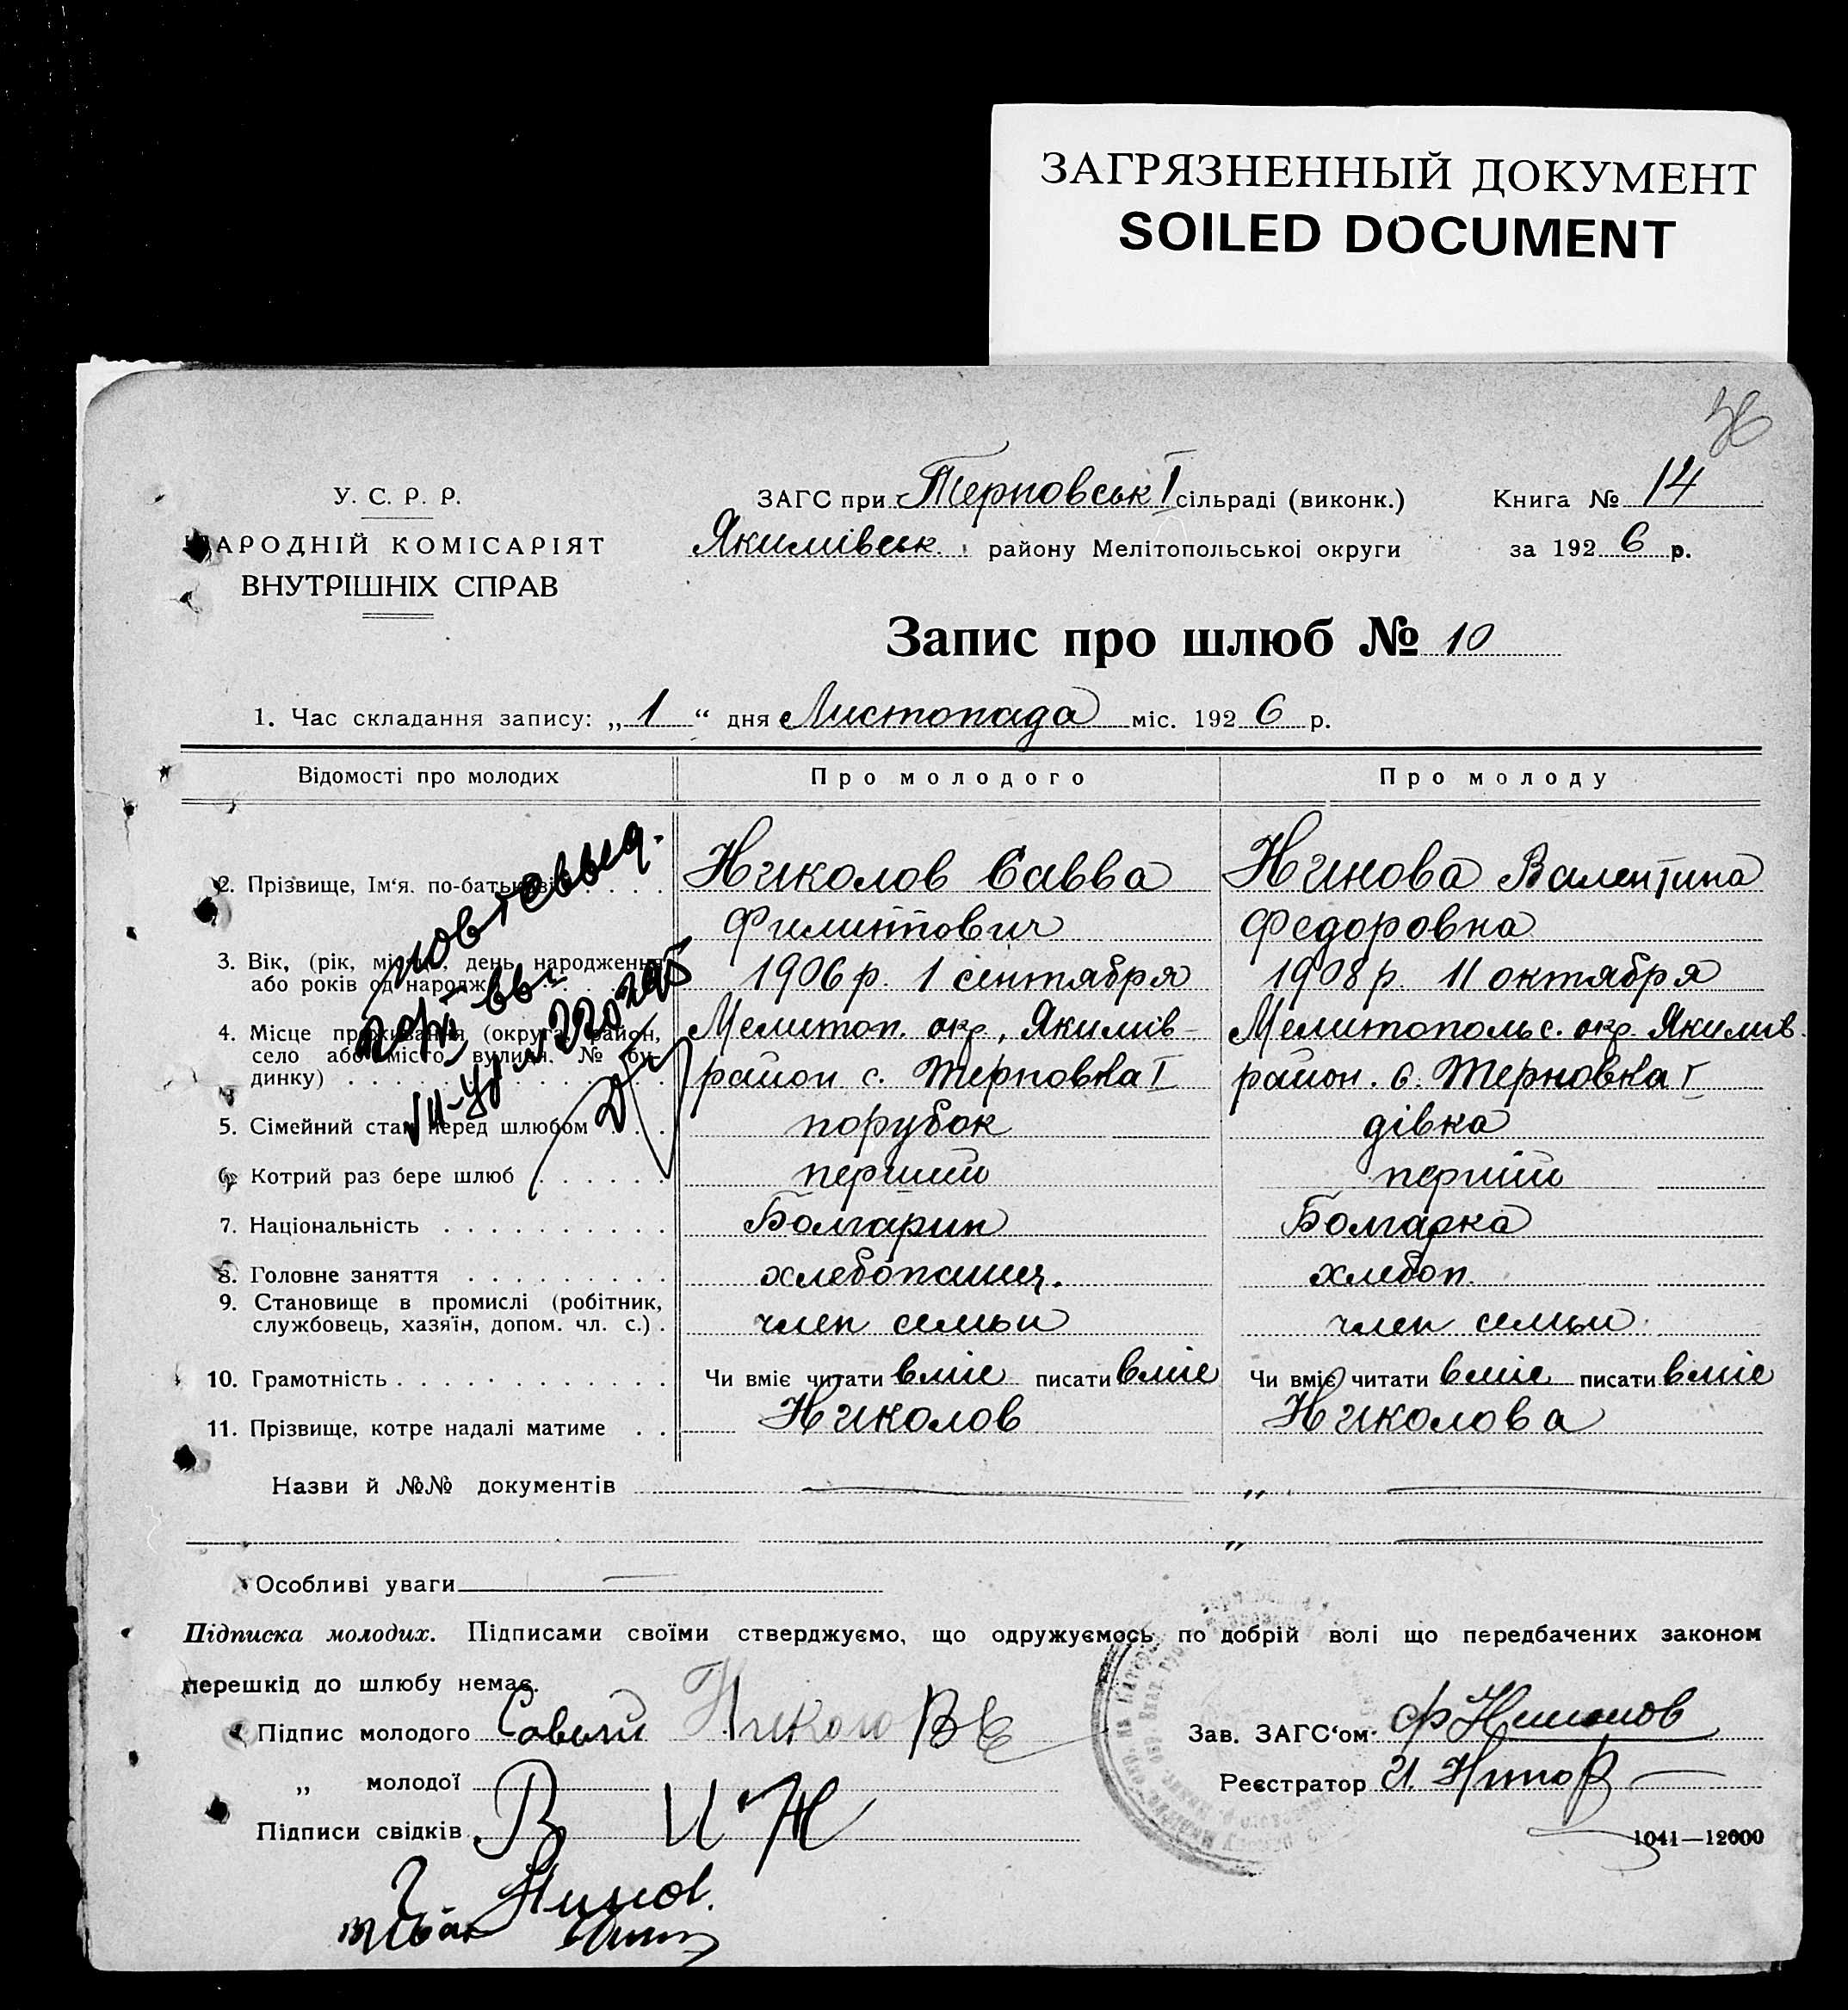 ЗАГРЯЗНЕННЫЙ ДОКУМЕНТ
SOILED DOCUMENT
У. С. Р. Р.
НАРОДНІЙ КОМІСАРІЯТ
ВНУТРІШНІХ СПРАВ
ЗАГС при Терновськ I сільраді (виконк.) Книга № 14
Якимівськ. району Мелітопольської округи за 1926 р.
Запис про шлюб № 10
1. Час складання запису: „1“ дня Листопада міс. 1926 р.
Відомості про молодих Про молодого Про молоду
2. Прізвище, Ім‘я. по-батькові . . . . Николов Савва Нинова Валентина
Филиппович Федоровна
3. Вік, (рік, місяць, день народження або років од народж. 1906 р. 1 сентября 1908 р. 11 октября
4. Місце проживання (округа, район, Мелитоп. окр., Якимів- Мелитопольс. окр. Якимів.
село або місто, вулиця. № бу-
динку) . . . . район с. Терновка I район. с. Терновка I
5. Сімейний стан перед шлюбом . . . порубок дівка
6. Котрий раз бере шлюб . . . . . . перший перший
7. Національність . . . . . . . . . . Болгарин Болгарка
8. Головне заняття . . . . . . . . . хлебопашец. хлебоп.
9. Становище в промислі (робітник,
службовець, хазяїн, допом. чл. с.) . член семьи член семьи
10. Грамотність . . . . . . . . . . . . Чи вміє читати вміє писати вміє Чи вміє читати вміє писати вміє
11. Прізвище, котре надалі матиме . . Николов Николова
Назви й №№ документів „
„
Особливі уваги
Підписка молодих. Підписами своїми стверджуємо, що одружуємось по добрій волі що передбачених законом
перешкід до шлюбу немає.
Підпис молодого Зав. ЗАГС‘ом
„ молодої Реєстратор
Підписи свідків
1041—12000